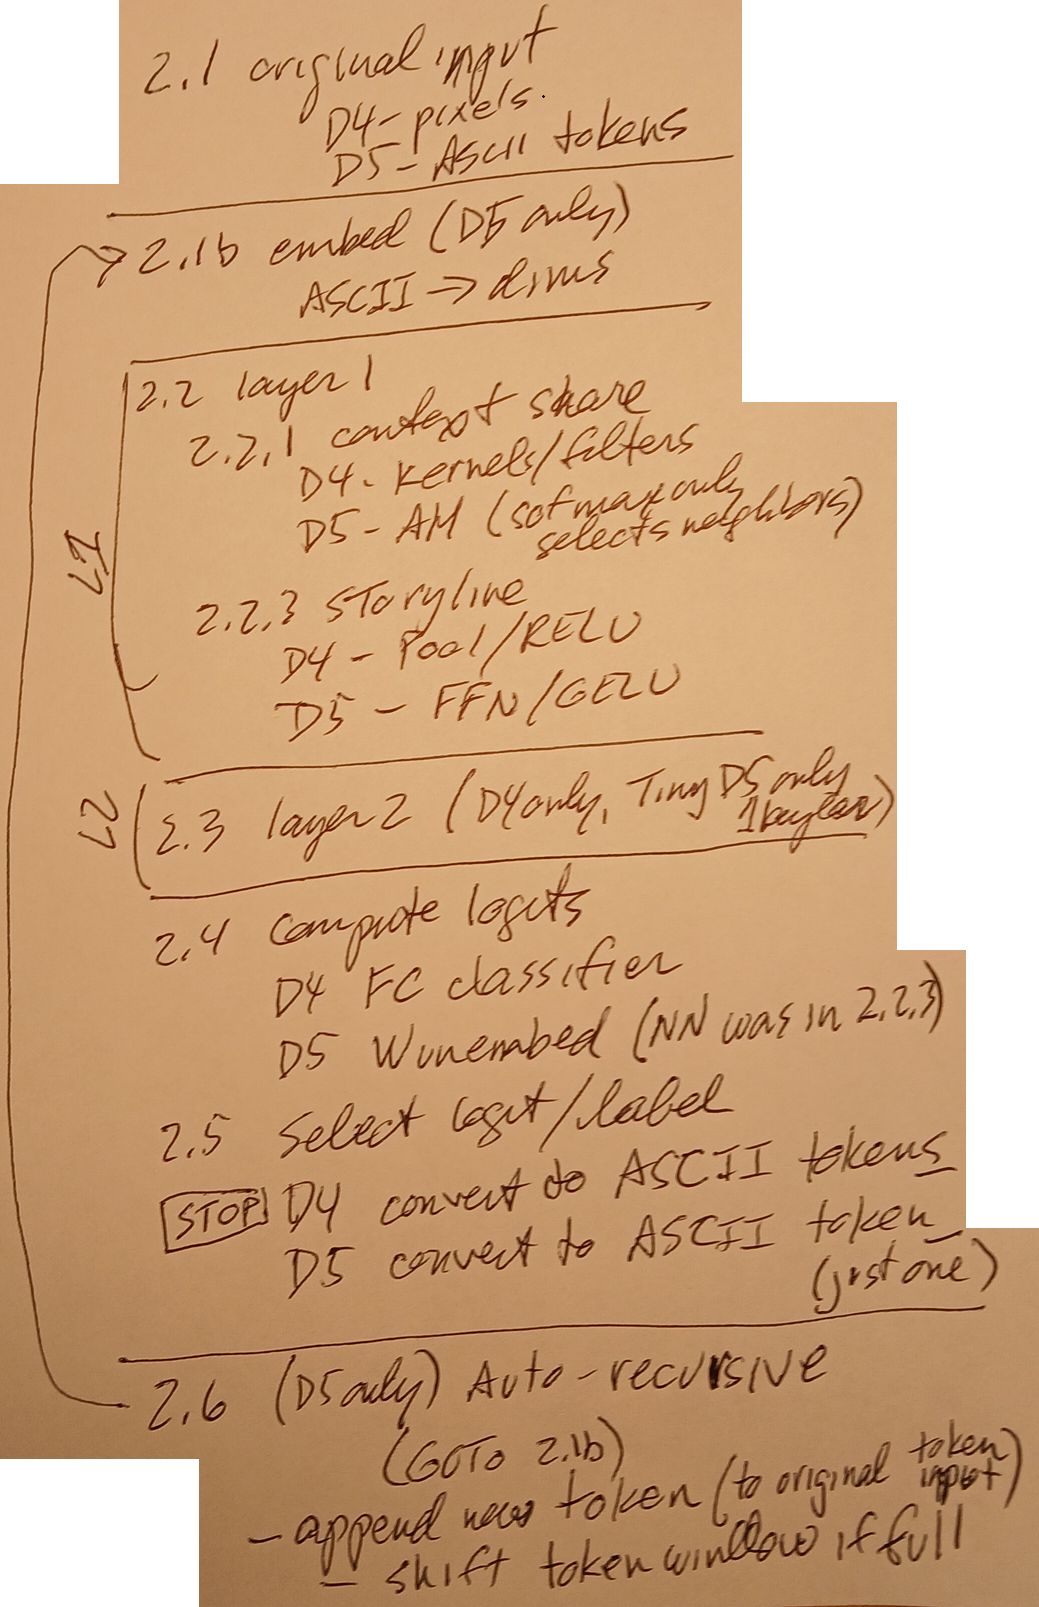 2.1 original input
D4 - pixels
D5 - ASCII tokens
2.1b embed (D5 only)
ASCII → dims
2.2 layer 1
2.2.1 context share
D4 - Kernels/filters
D5 - AM (sofmax only
selects neighbors)
L1
2.2.3 storyline
D4 - Pool/RELU
D5 - FFN/GELU
L2
2.3 layer 2 (D4 only, Tiny D5 only
1 layer)
2.4 compute logits
D4 FC classifier
D5 Wunembed (NN was in 2.2.3)
2.5 Select logit/label
STOP D4 convert to ASCII tokens
D5 convert to ASCII token
(just one)
2.6 (D5 only) Auto-recursive
(GOTO 2.1b)
- append new token (to original token
input)
- shift token window if full